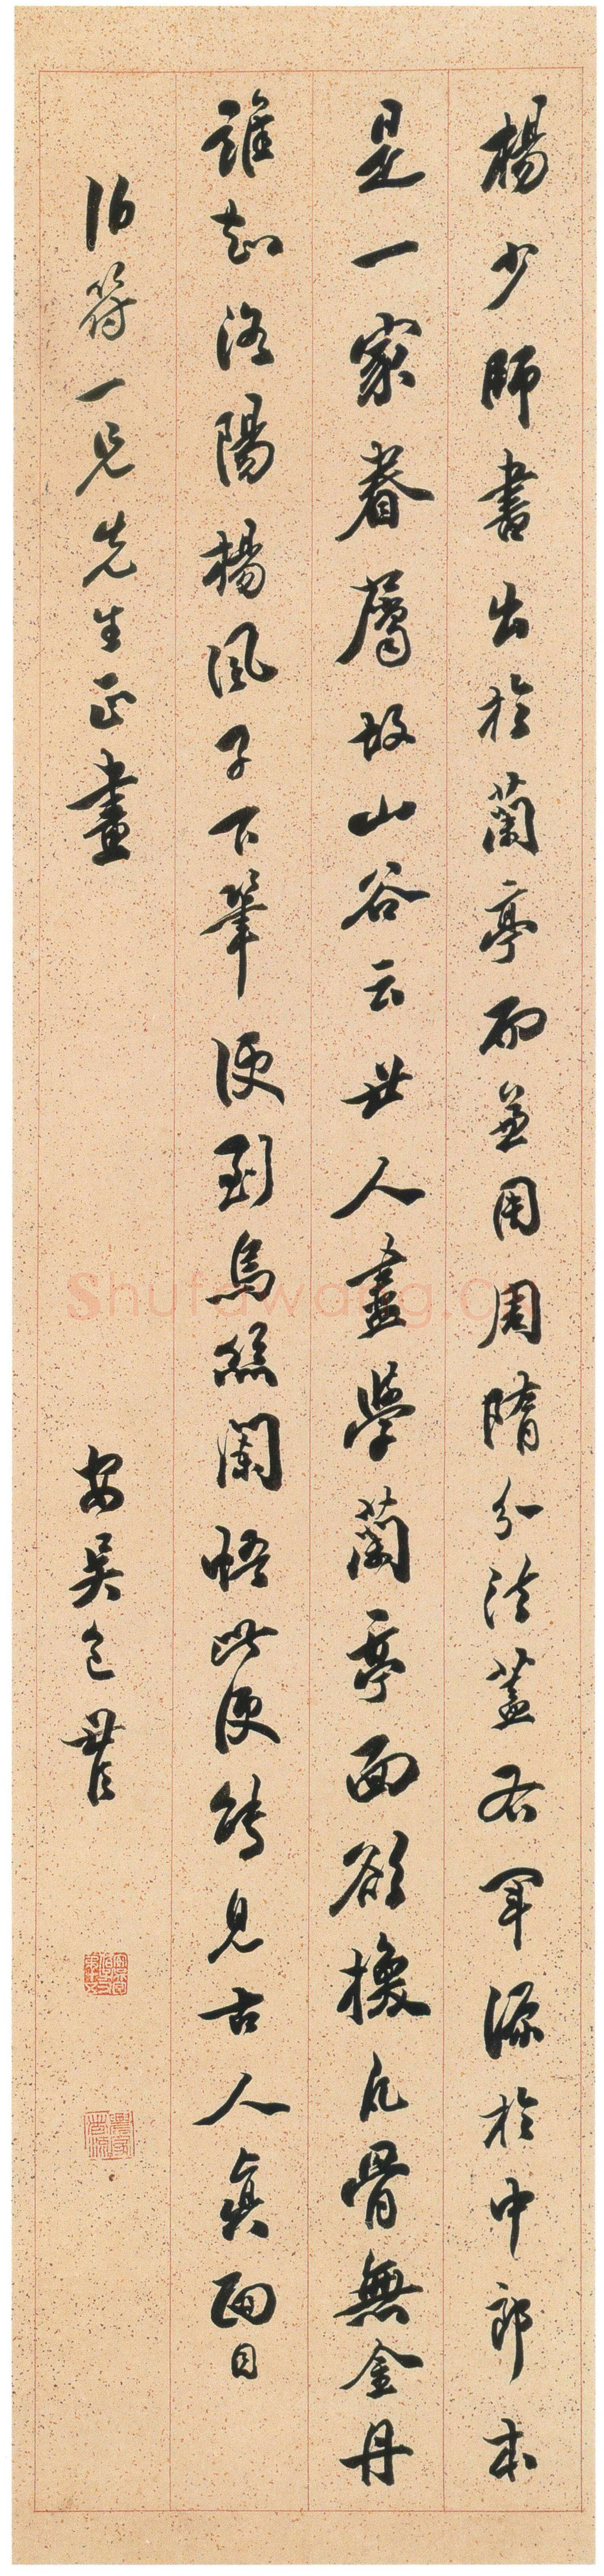 楊少師書出於蘭亭而兼用周隋分法蓋右軍源於中郎本
是一家眷屬故山谷云世人盡學蘭亭面欲換凡骨無金丹
誰知洛陽楊風子下筆便到烏絲闌悟此便能見古人真面目
伯符一兄先生正畫
安吳包世臣
Shufawang.c